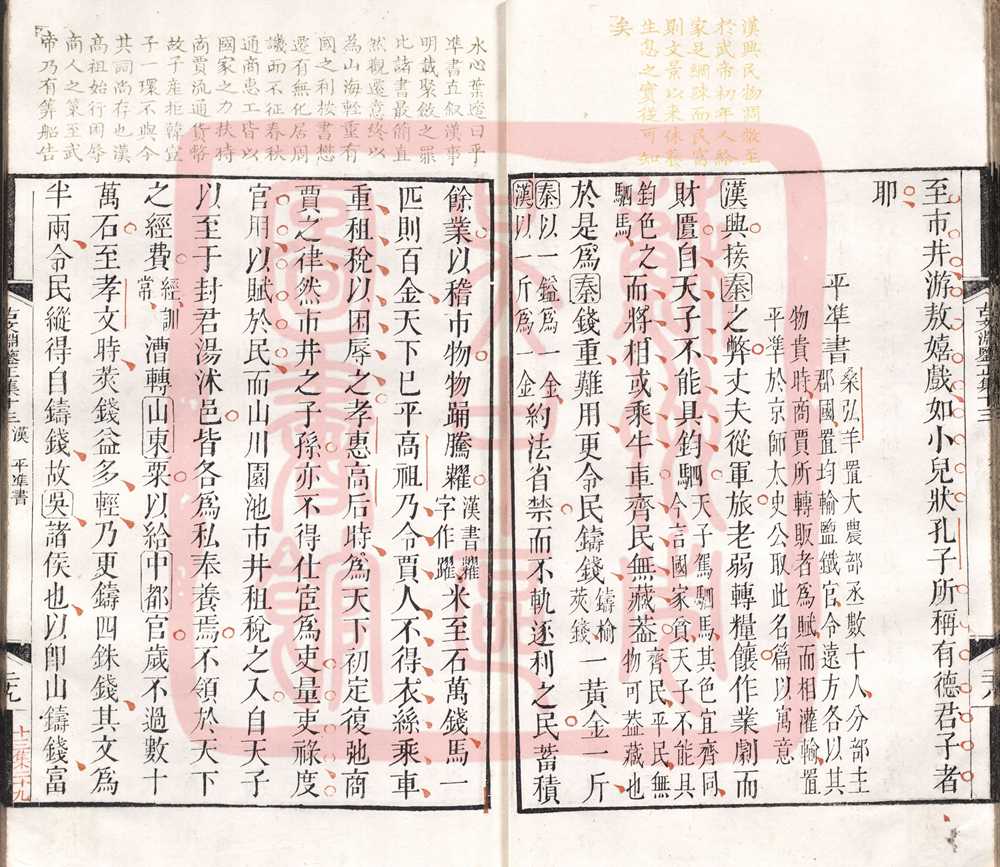 漢興民物凋敝至
於武帝初年人給
家足網疎而民富
則文景以來休養
生息之實從可知
矣
至市井游敖嬉戲如小兒狀孔子所稱有德君子者
耶
平準書
桑弘羊置大農部丞數十人分部主
郡國置均輸鹽鐵官令遠方各以其
物貴時商賈所轉販者為賦而相灌輸置
平準於京師太史公取此名篇以寓意
漢興接秦之弊丈夫從軍旅老弱轉糧饟作業劇而
財匱自天子不能具鈞駟天子駕駟馬其色宜齊同
今言國家貧天子不能具
鈞色之
駟馬而將相或乘牛車齊民無藏葢齊民平民無
物可葢藏也
於是為秦錢重難用更令民鑄錢鑄榆
莢錢一黃金一斤
秦以一鎰為一金
漢以一斤為一金約法省禁而不軌逐利之民蓄積
水心葉適曰平
準書直叙漢事
明載聚斂之罪
比諸書最簡直
然觀遷意終以
為山海輕重有
國之利按書懋
遷有無化居周
譏而不征春秋
通商惠工皆以
國家之力扶持
商賈流通貨幣
故子産拒韓宣
子一環不與今
其詞尚存也漢
高祖始行困辱
商人之策至武
帝乃有算船告
餘業以稽市物物踊騰糶漢書糶
字作躍米至石萬錢馬一
匹則百金天下已平高祖乃令賈人不得衣絲乘車
重租稅以困辱之孝惠高后時為天下初定復弛商
賈之律然市井之子孫亦不得仕宦為吏量吏祿度
官用以賦於民而山川園池市井租稅之入自天子
以至于封君湯沐邑皆各為私奉養焉不領於天下
之經費經訓
常漕轉山東粟以給中都官歲不過數十
萬石至孝文時莢錢益多輕乃更鑄四銖錢其文為
半兩令民縱得自鑄錢故吳諸侯也以卽山鑄錢富
古文淵鑒正集十三 漢 平準書
十三集二九